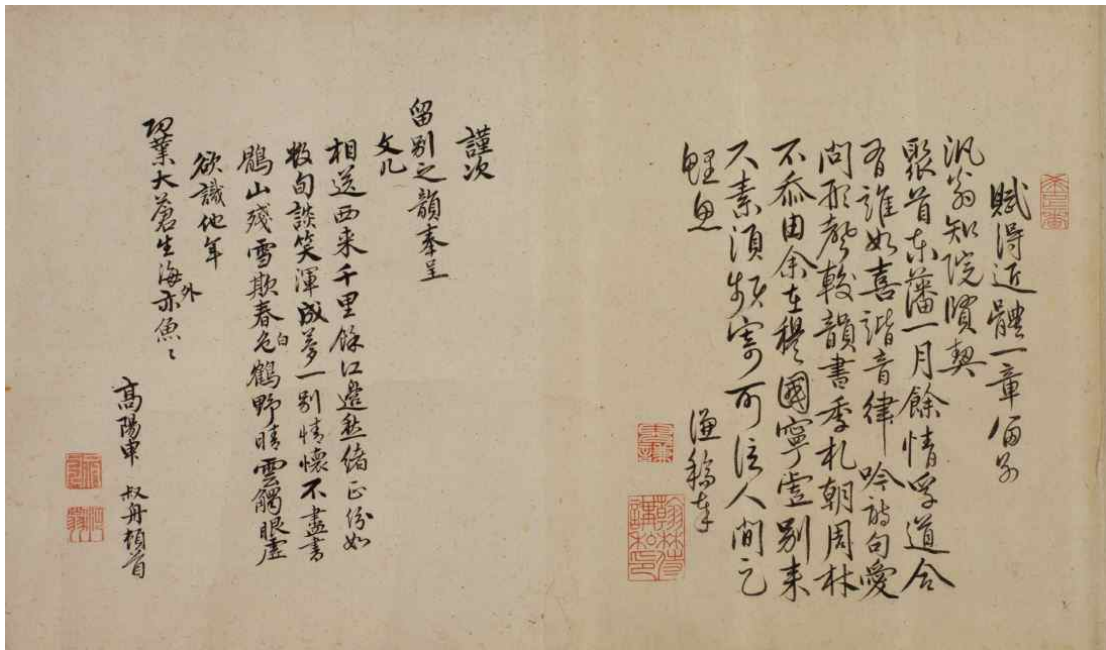 賦得近體一章留別
汎翁知院賢契
聚首東藩一月餘情孚道合
有誰如喜諧音律吟詩句愛
問形聲較韻書季札朝周材
不忝由余在穆國寧虛別來
尺素須頻寄可信人間乏
鯉魚
謙稿奉
謹次
留別之韻奉呈
文几
相送西来千里餘江邊愁緒正紛如
數旬談笑渾成夢一别情懷不盡書
鶻山殘雪欺春色白鶴野晴雲觸眼虛
欲識他年
功業大蒼生海外亦魚〻
高陽申叔舟頓首